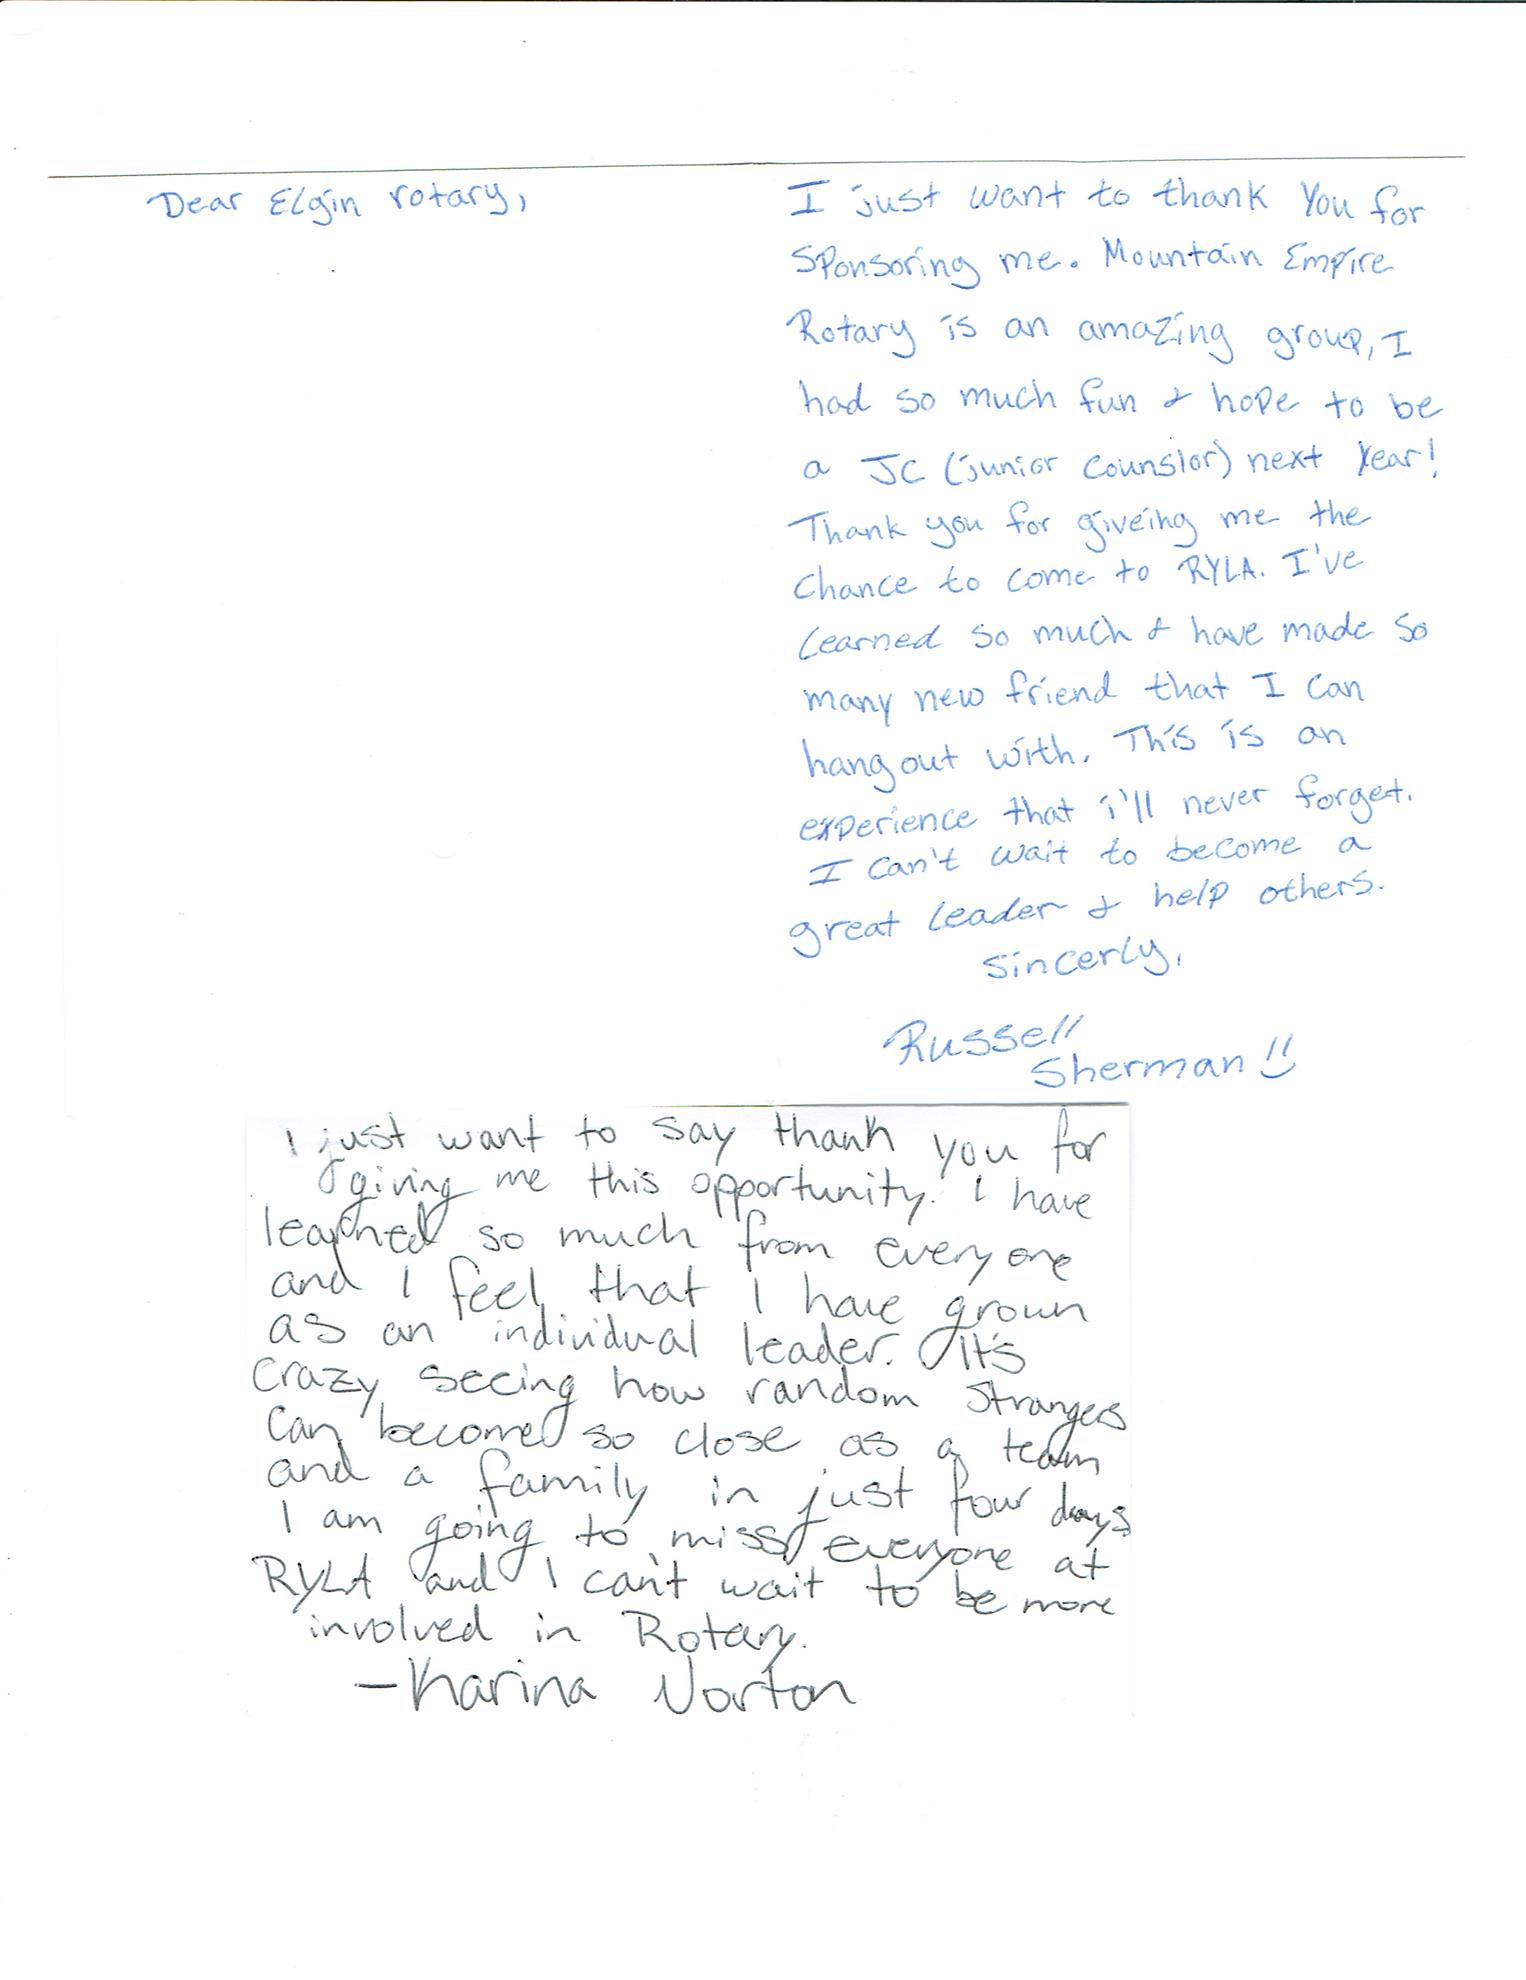 Dear Elgin rotary,
I just want to thank You for
Sponsoring me. Mountain Empire
Rotary is an amazing group, I
had so much fun & hope to be
a JC (junior Counslor) next Year!
Thank you for giveing me the
Chance to come to RYLA. I've
Learned so much & have made so
many new friend that I can
hang out with. This is an
experience that i'll never forget.
I can't wait to become a
great leader & help others.
Sincerly,
Russell
Sherman
I just want to say thank you for
giving me this opportunity. I have
learned so much from everyone
and I feel that I have grown
as an individual leader. It's
crazy seeing how random strangers
can become so close as a team
and a family in just four days
I am going to miss everyone at
RYLA and I can't wait to be more
involved in Rotary.
-Karina Norton